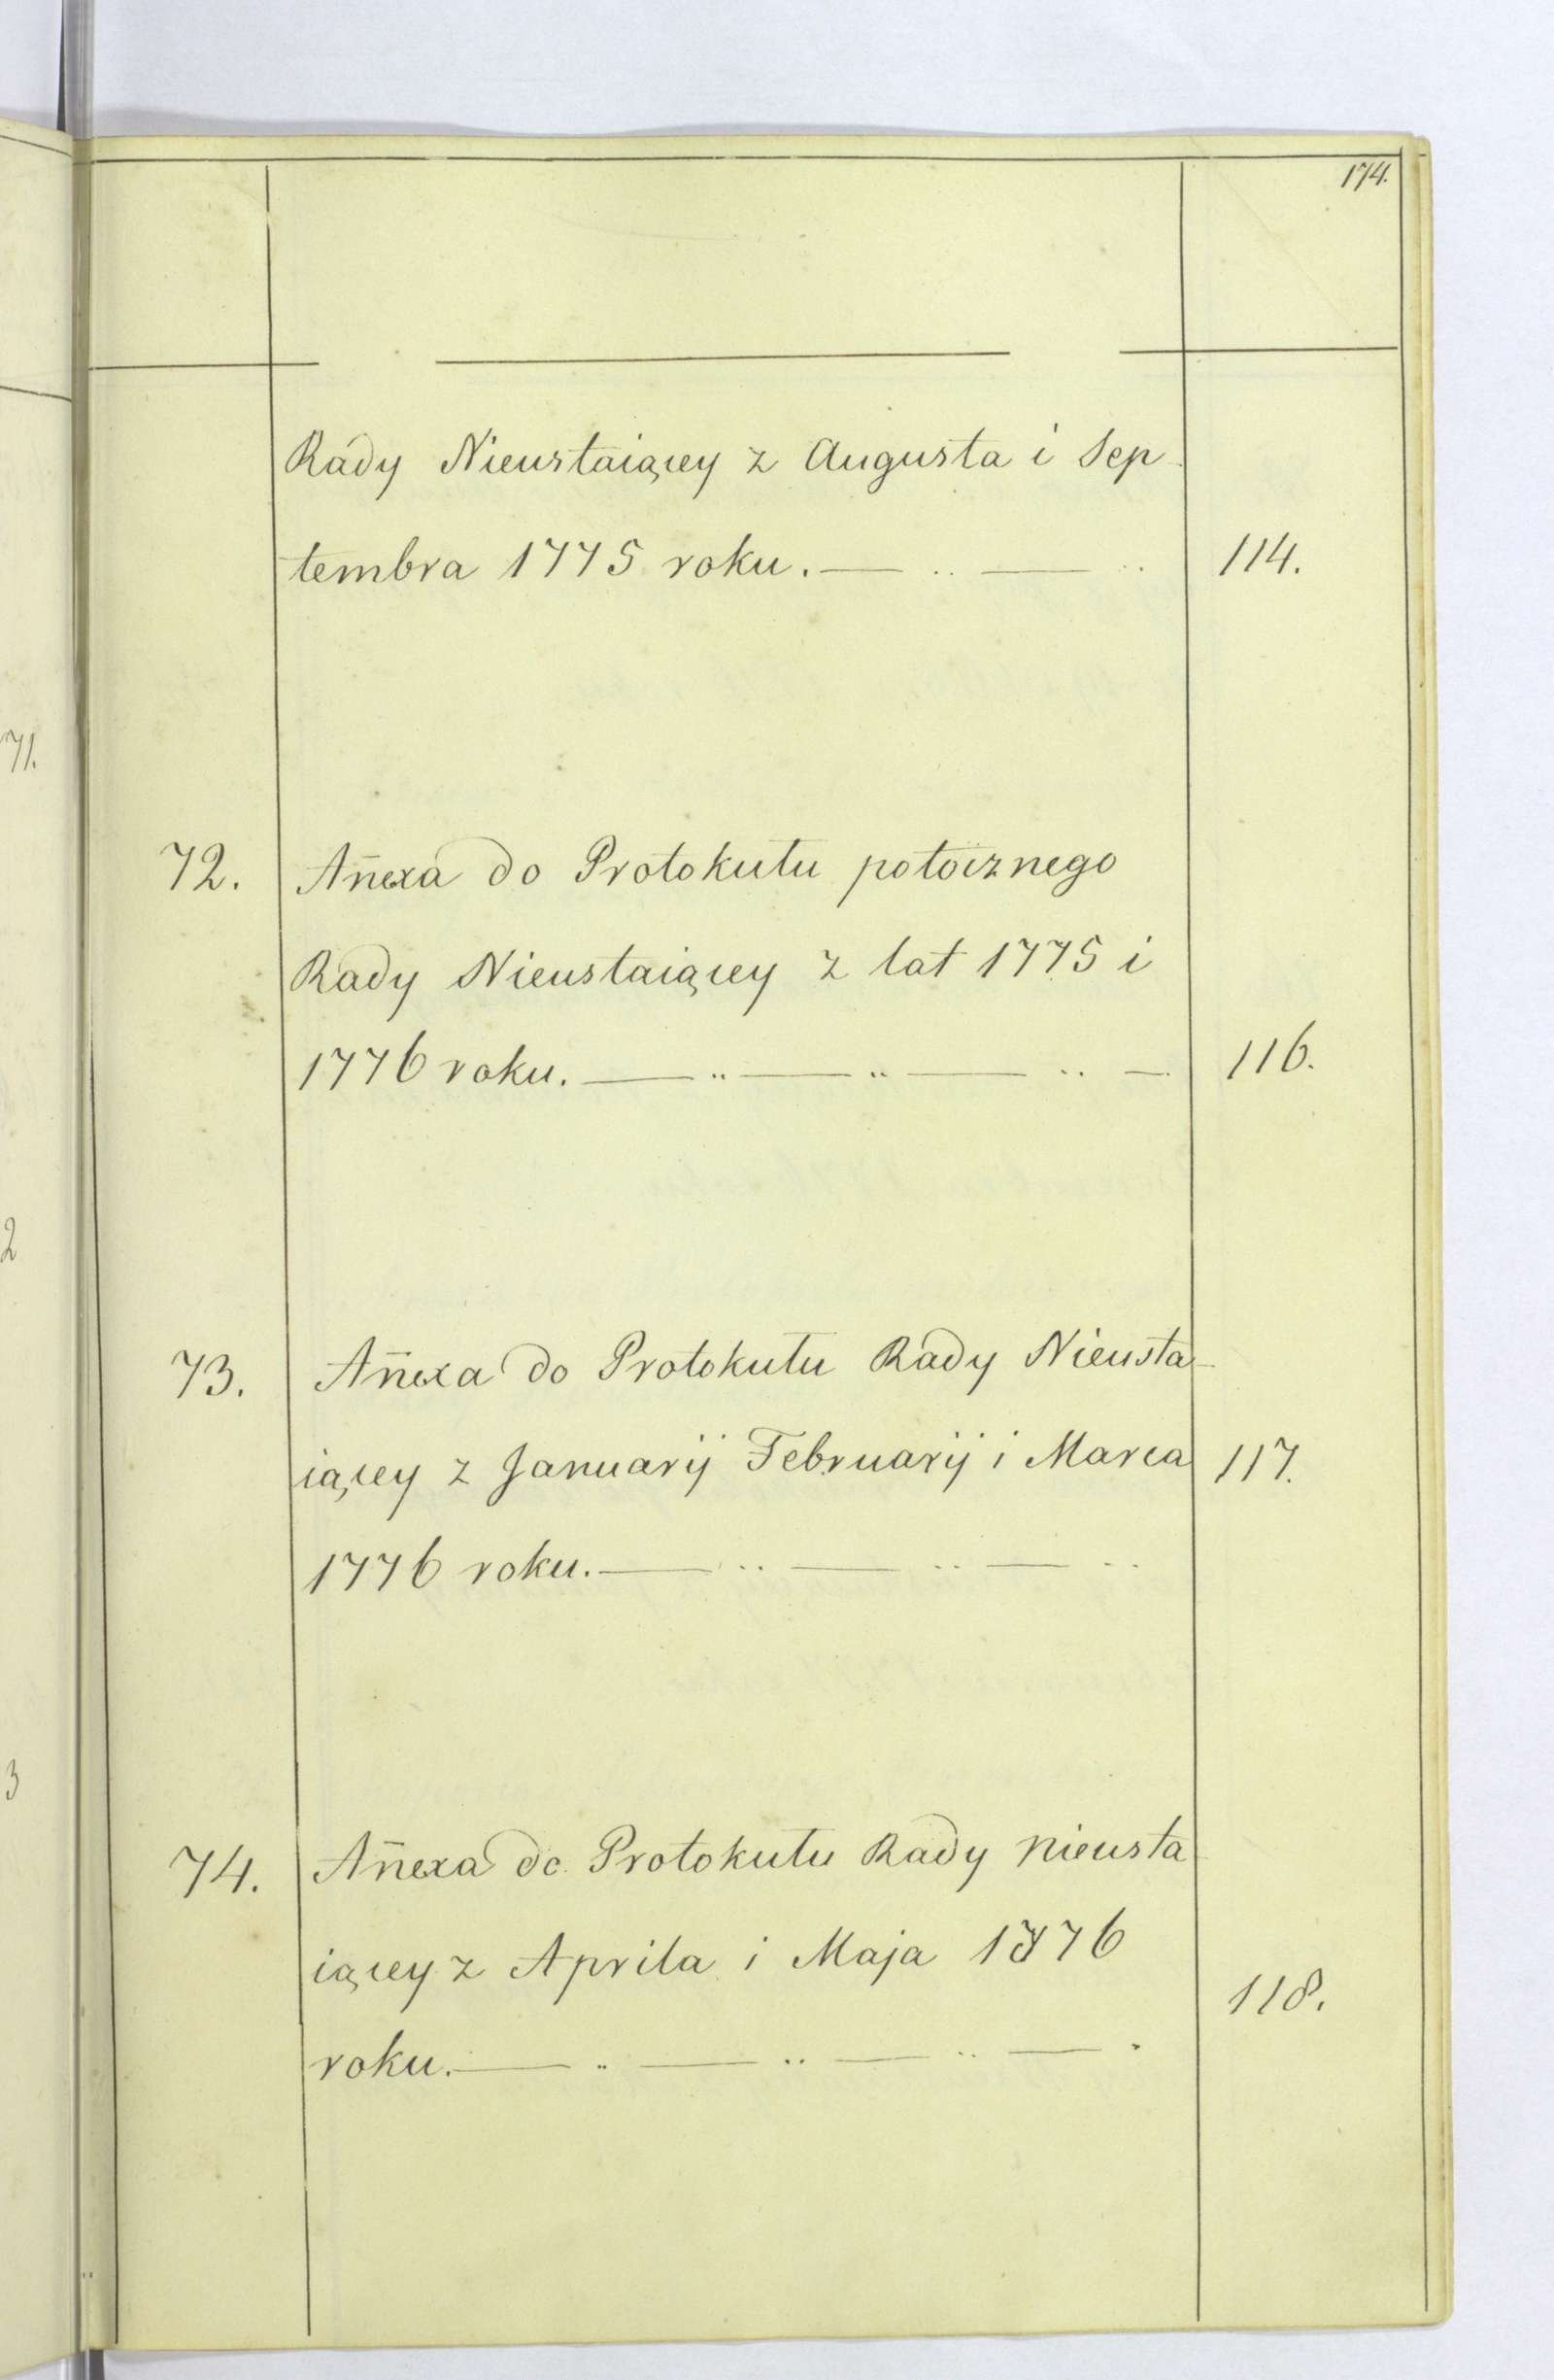 174.
Rady Nieustaiącey z Augusta i Sep-
tembra 1775 roku. — .. — .. 114.
71.
72. Añexa do Protokułu potocznego
Rady Nieustaiącey z lat 1775 i
1776 roku. — .. — .. — .. — 116.
2
73. Añexa do Protokułu Rady Nieusta-
iącey z Januarij Februarij i Marca 117.
1776 roku. — .. — .. — ..
3
74. Añexa do Protokułu Rady Nieusta-
iącey z Aprila i Maja 1776
118.
roku. — .. — .. — .. — .